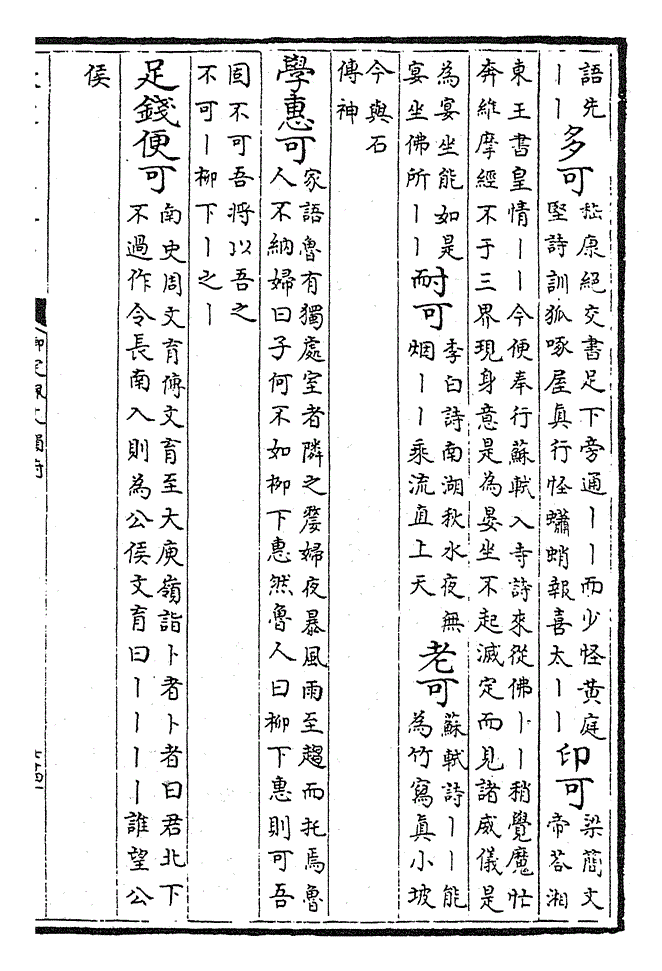 語先
丨丨
多可
嵇康絶交書足下旁通丨丨而少怪黄庭
堅詩訓狐啄屋真行怪蠨蛸報喜太丨丨
印可
梁簡文
帝荅湘
東王書皇情丨丨今便奉行蘇軾入寺詩來從佛丨丨稍覺魔忙
奔維摩經不于三界現身意是為晏坐不起滅定而見諸威儀是
為宴坐能如是
宴坐佛所丨丨
耐可
李白詩南湖秋水夜無
烟丨丨乘流直上天
老可
蘇軾詩丨丨能
為竹寫真小坡
今與石
傳神
學惠可
家語魯有獨處室者隣之嫠婦夜暴風雨至趨而托焉魯
人不納婦曰子何不如柳下惠然魯人曰柳下惠則可吾
固不可吾將以吾之
不可丨柳下丨之丨
足錢便可
南史周文育傳文育至大庾嶺詣卜者卜者曰君北下
不過作令長南入則為公侯文育曰丨丨丨丨誰望公
侯